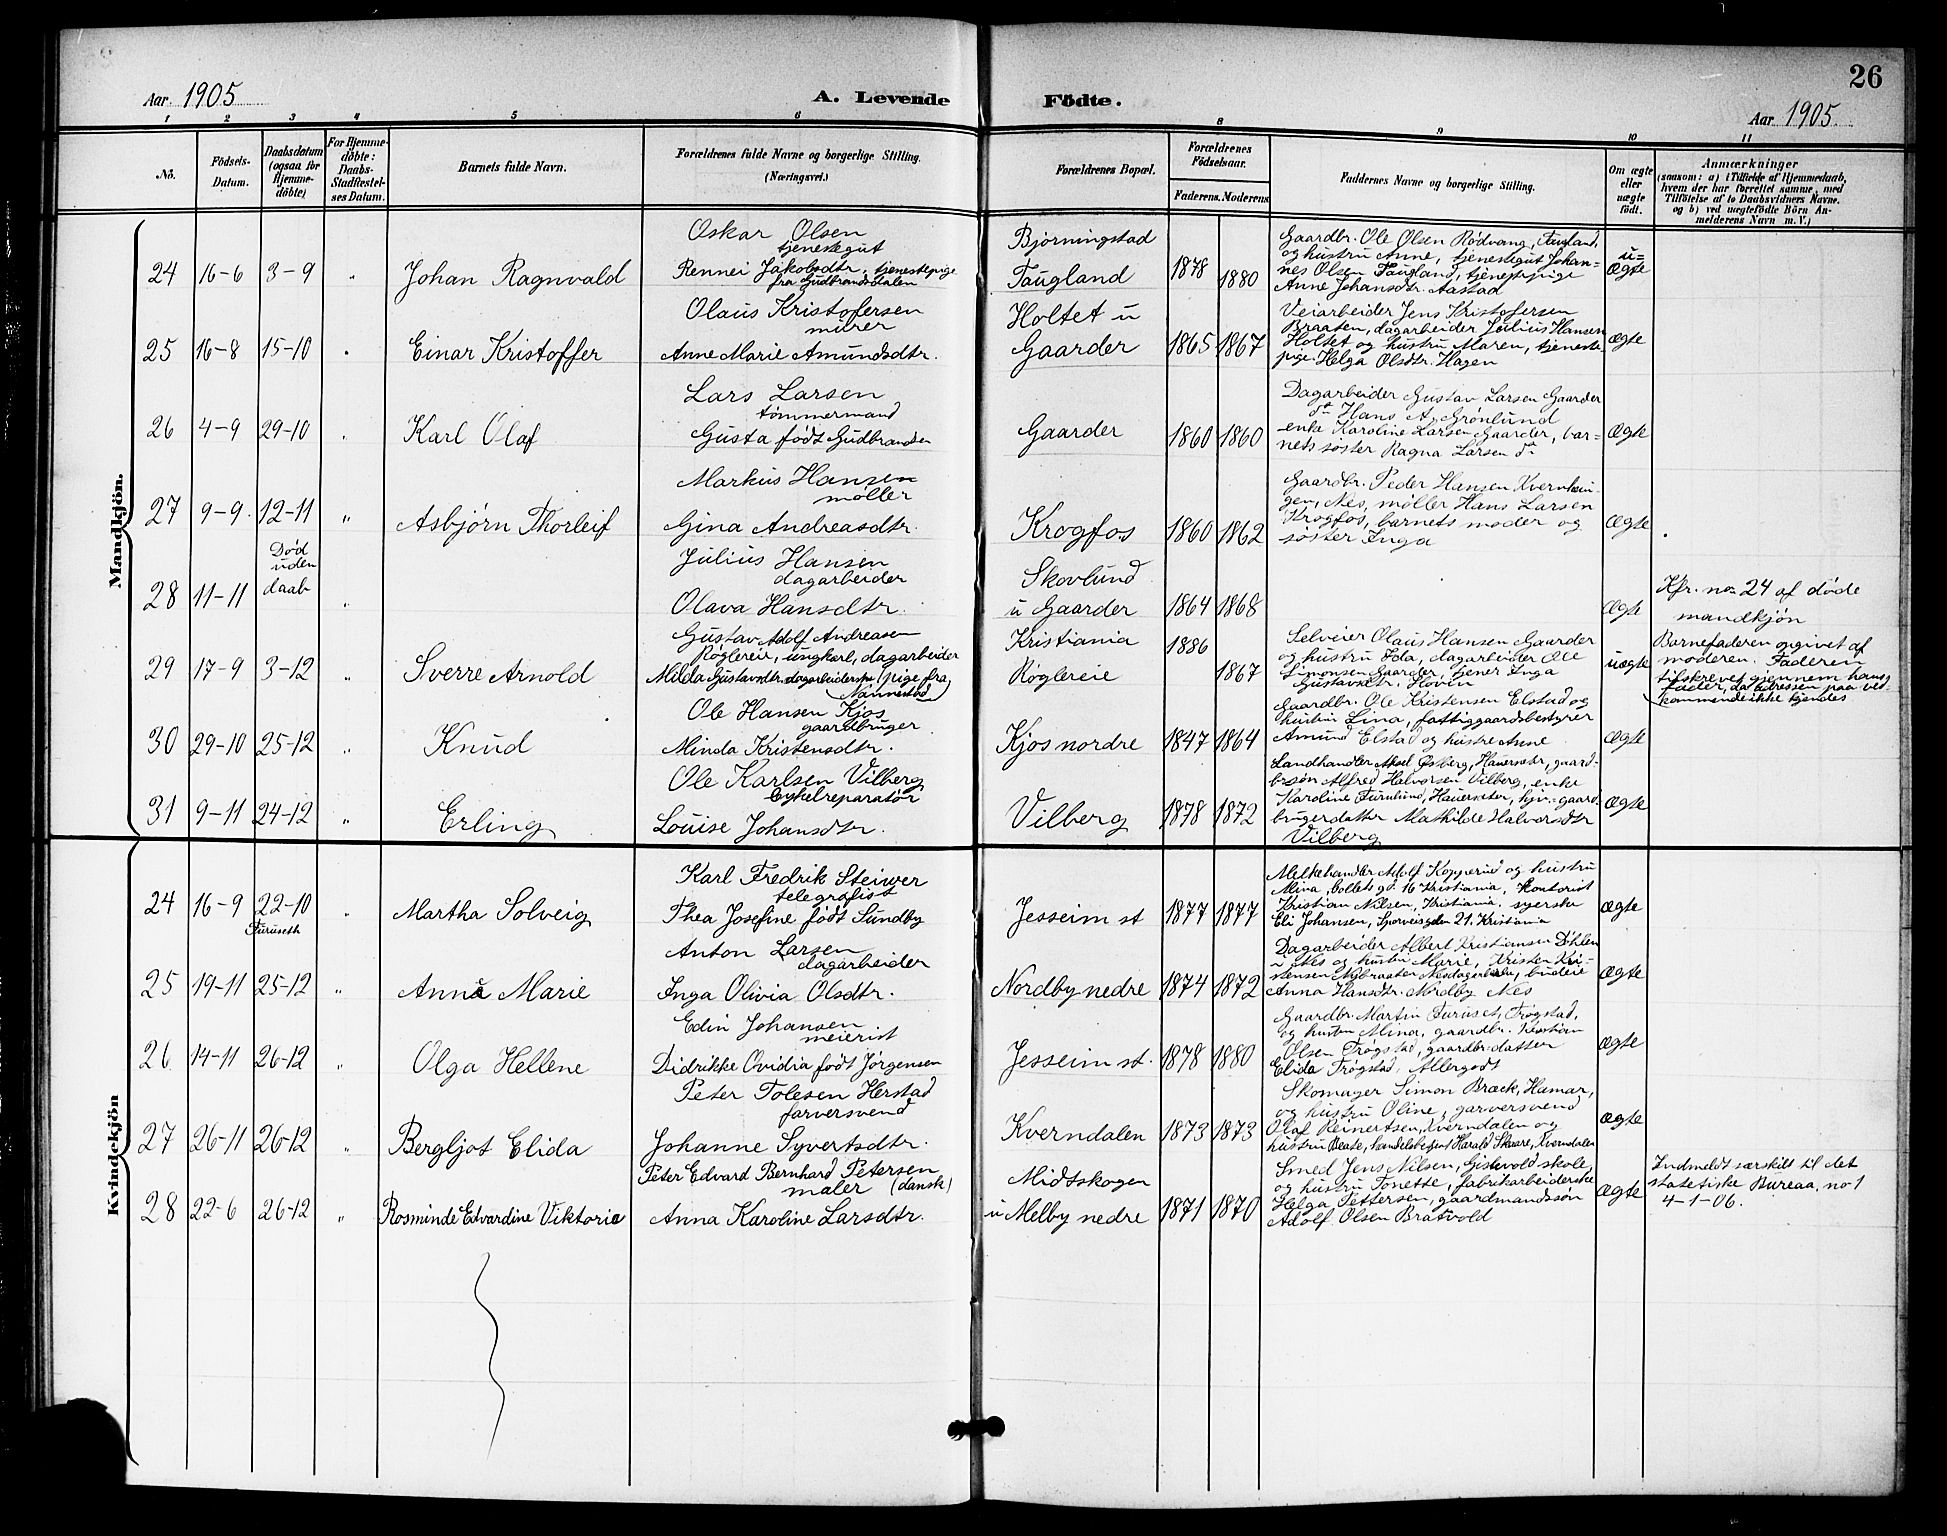 26
Aar. 1905
A. Levende
Födte.
Aar 1905.
1 2 3 4 5 6 8 9 10 11
No.
Födsels-Datum.
Daabsdatum (ogsaa for Hjemme-döbte)
For Hjemme-döbte: Daabs-Stadfæstel-ses Datum.
Barnets fulde Navn.
Forældrenes fulde Navne og borgerlige Stilling.
(Næringsvei.)
Forældrenes Bopæl.
Forældrenes Födselsaar.
Faderens. Moderens
Faddernes Navne og borgerlige Stilling.
Om ægte eller uægte födt.
Anmærkninger
(saasom: a) i Tilfælde af Hjemmedaab,
hvem der har forrettet samme, med
Tilföielse af to Daabsvidners Navne.
og b) ved uægtefödte Börn An-
melderens Navn m. V.)
Mandkjön.
24 16-6 3-9 " Johan Ragnvald
Oskar Olsen
tjenestegut
Rennei Jakobsdtr. tjenestepige
fra Gudbrandsdalen
Bjørningstad
Taugland
1878 1880
Gaardbr. Ole Olsen Rødvang, Taugland,
og hustru Anne, tjenestegut Johan=
nes Olsen Taugland, tjenestepige
Anne Johansdtr. Aastad
u=
Ægte
25 16-8 15-10 " Einar Kristoffer
Olaus Kristofersen
murer
Anne Marie Amundsdtr.
Holtet u
Gaarder
1865 1867
Veiarbeider Jens Kristofersen
Braaten, dagarbeider Julius Hansen
Holtet og hustru Maren, tjeneste-
pige Helga Olsdtr. Hagen
Ægte
26 4-9 29-10 " Karl Olaf
Lars Larsen
tømmermand
Gusta født Gudbrandsen
Gaarder
1860 1860
Dagarbeider Gustav Larsen Gaarder
do Hans A. Grønlund
enke Karoline Larsen Gaarder, bar=
nets søster Ragna Larsen do
Ægte
27 9-9 12-11 " Asbjørn Thorleif
Markus Hansen
møller
Gina Andreasdtr.
Krogfos
1860 1862
Gaardbr. Peder Hansen Kvernhun-
gen, Nes, møller Hans Larsen
Krogfos, barnets moder og
søster Inga
Ægte
28 11-11 Død uden daab "
Julius Hansen
dagarbeider
Olava Hansdtr.
Skovlund
u Gaarder
1864 1868
Ægte
Kfr. no 24 af døde
mandkjøn
29 17-9 3-12 " Sverre Arnold
Gustav Adolf Andreasen
Røglereie, ungkarl, dagarbeider
Milda Gustavsdtr. dagarbeiderske (pige fra
Nannestad)
Kristiania
Røglereie
1886 1867
Selveier Olaus Hansen Gaarder
og hustru Ida, dagarbeider Ole
Simonsen Gaarder, tjener Inga
Gustavsdtr. Hovin
uægte
Barnefaderen opgivet af
moderen. Faderen
tilskrevet gjennem hans
Fader, da adressen paa ved-
kommende ikke kjendes
30 29-10 25-12 " Knud
Ole Hansen Kjos
gaardbruger
Minda Kristensdtr.
Kjos nordre
1847 1864
Gaardbr. Ole Kristensen Elstad og
hustru Lina, fattiggaardsbestyrer
Amund Elstad og hustru Anne
Ægte
31 9-11 24-12 " Erling
Ole Karlsen Vilberg
Cykelreparatør
Louise Johansdtr.
Vilberg
1878 1872
Landhandler Aksel Østberg, Hauerseter, gaard-
br.søn Alfred Halvorsen Vilberg, enke
Karoline Furulund, Hauerseter, hjv.=gaard-
brugerdatter Mathilde Halvorsdtr
Vilberg
Ægte
Kvindekjön
24 16-9 22-10 Furuseth " Martha Solveig
Karl Fredrik Steiwer
telegrafist
Thea Josefine født Sundby
Jesseim st
1877 1877
Melkehandler Adolf Kopperud og hustru
Mina, Kristiania, Kontorist
Kristian Nilsen, Kristiania, syerske
Eli Johansen, Sporveisgden 21, Kristiania
Ægte
25 19-11 25-12 " Anna Marie
Anton Larsen
dagarbeider
Inga Olivia Olsdtr.
Nordby nedre
1874 1872
Dagarbeider Albert Kristiansen Døhlen
i Nes og hustru Marie, Kristen Kri=
stensen Nybraaten Nes, budeie
Anna Hansdtr. Nordby Nes
Ægte
26 14-11 26-12 " Olga Hellene
Edin Johansen
meierist
Didrikke Ovidia født Jørgensen
Jesseim st.
1878 1880
Gaardbr. Martin Furuset, Trøgstad,
og hustru Mina, gaardbr. Kristian
Olsen Trøgstad, gaardbr.datter
Elida Trøgstad, Allergodt
Ægte
27 26-11 26-12 " Bergljot Elida
Peter Tolesen Herstad
farversvend
Johanne Syvertsdtr.
Kverndalen
1873 1873
Skomager Simon Bræck, Hamar,
og hustru Oline, garversvend
Olaf Reinertsen, Kverndalen og
hustru Beate, handelsbetjent Harald Skaare, Kverndalen
Ægte
28 22-6 26-12 " Rosminde Edvardine Viktoria
Peter Edvard Bernhard Petersen
maler (dansk)
Anna Karoline Larsdtr.
Midtskogen
u Melby nedre
1871 1870
Smed Jens Nilsen, Gistevold skole,
og hustru Tonette, fabrikarbeiderske
Helga Pettersen, gaardmandssøn
Adolf Olsen Bratvold
Ægte
Indmeldt særskilt til det
statetiske Bureaa, no 1
4-1-06.